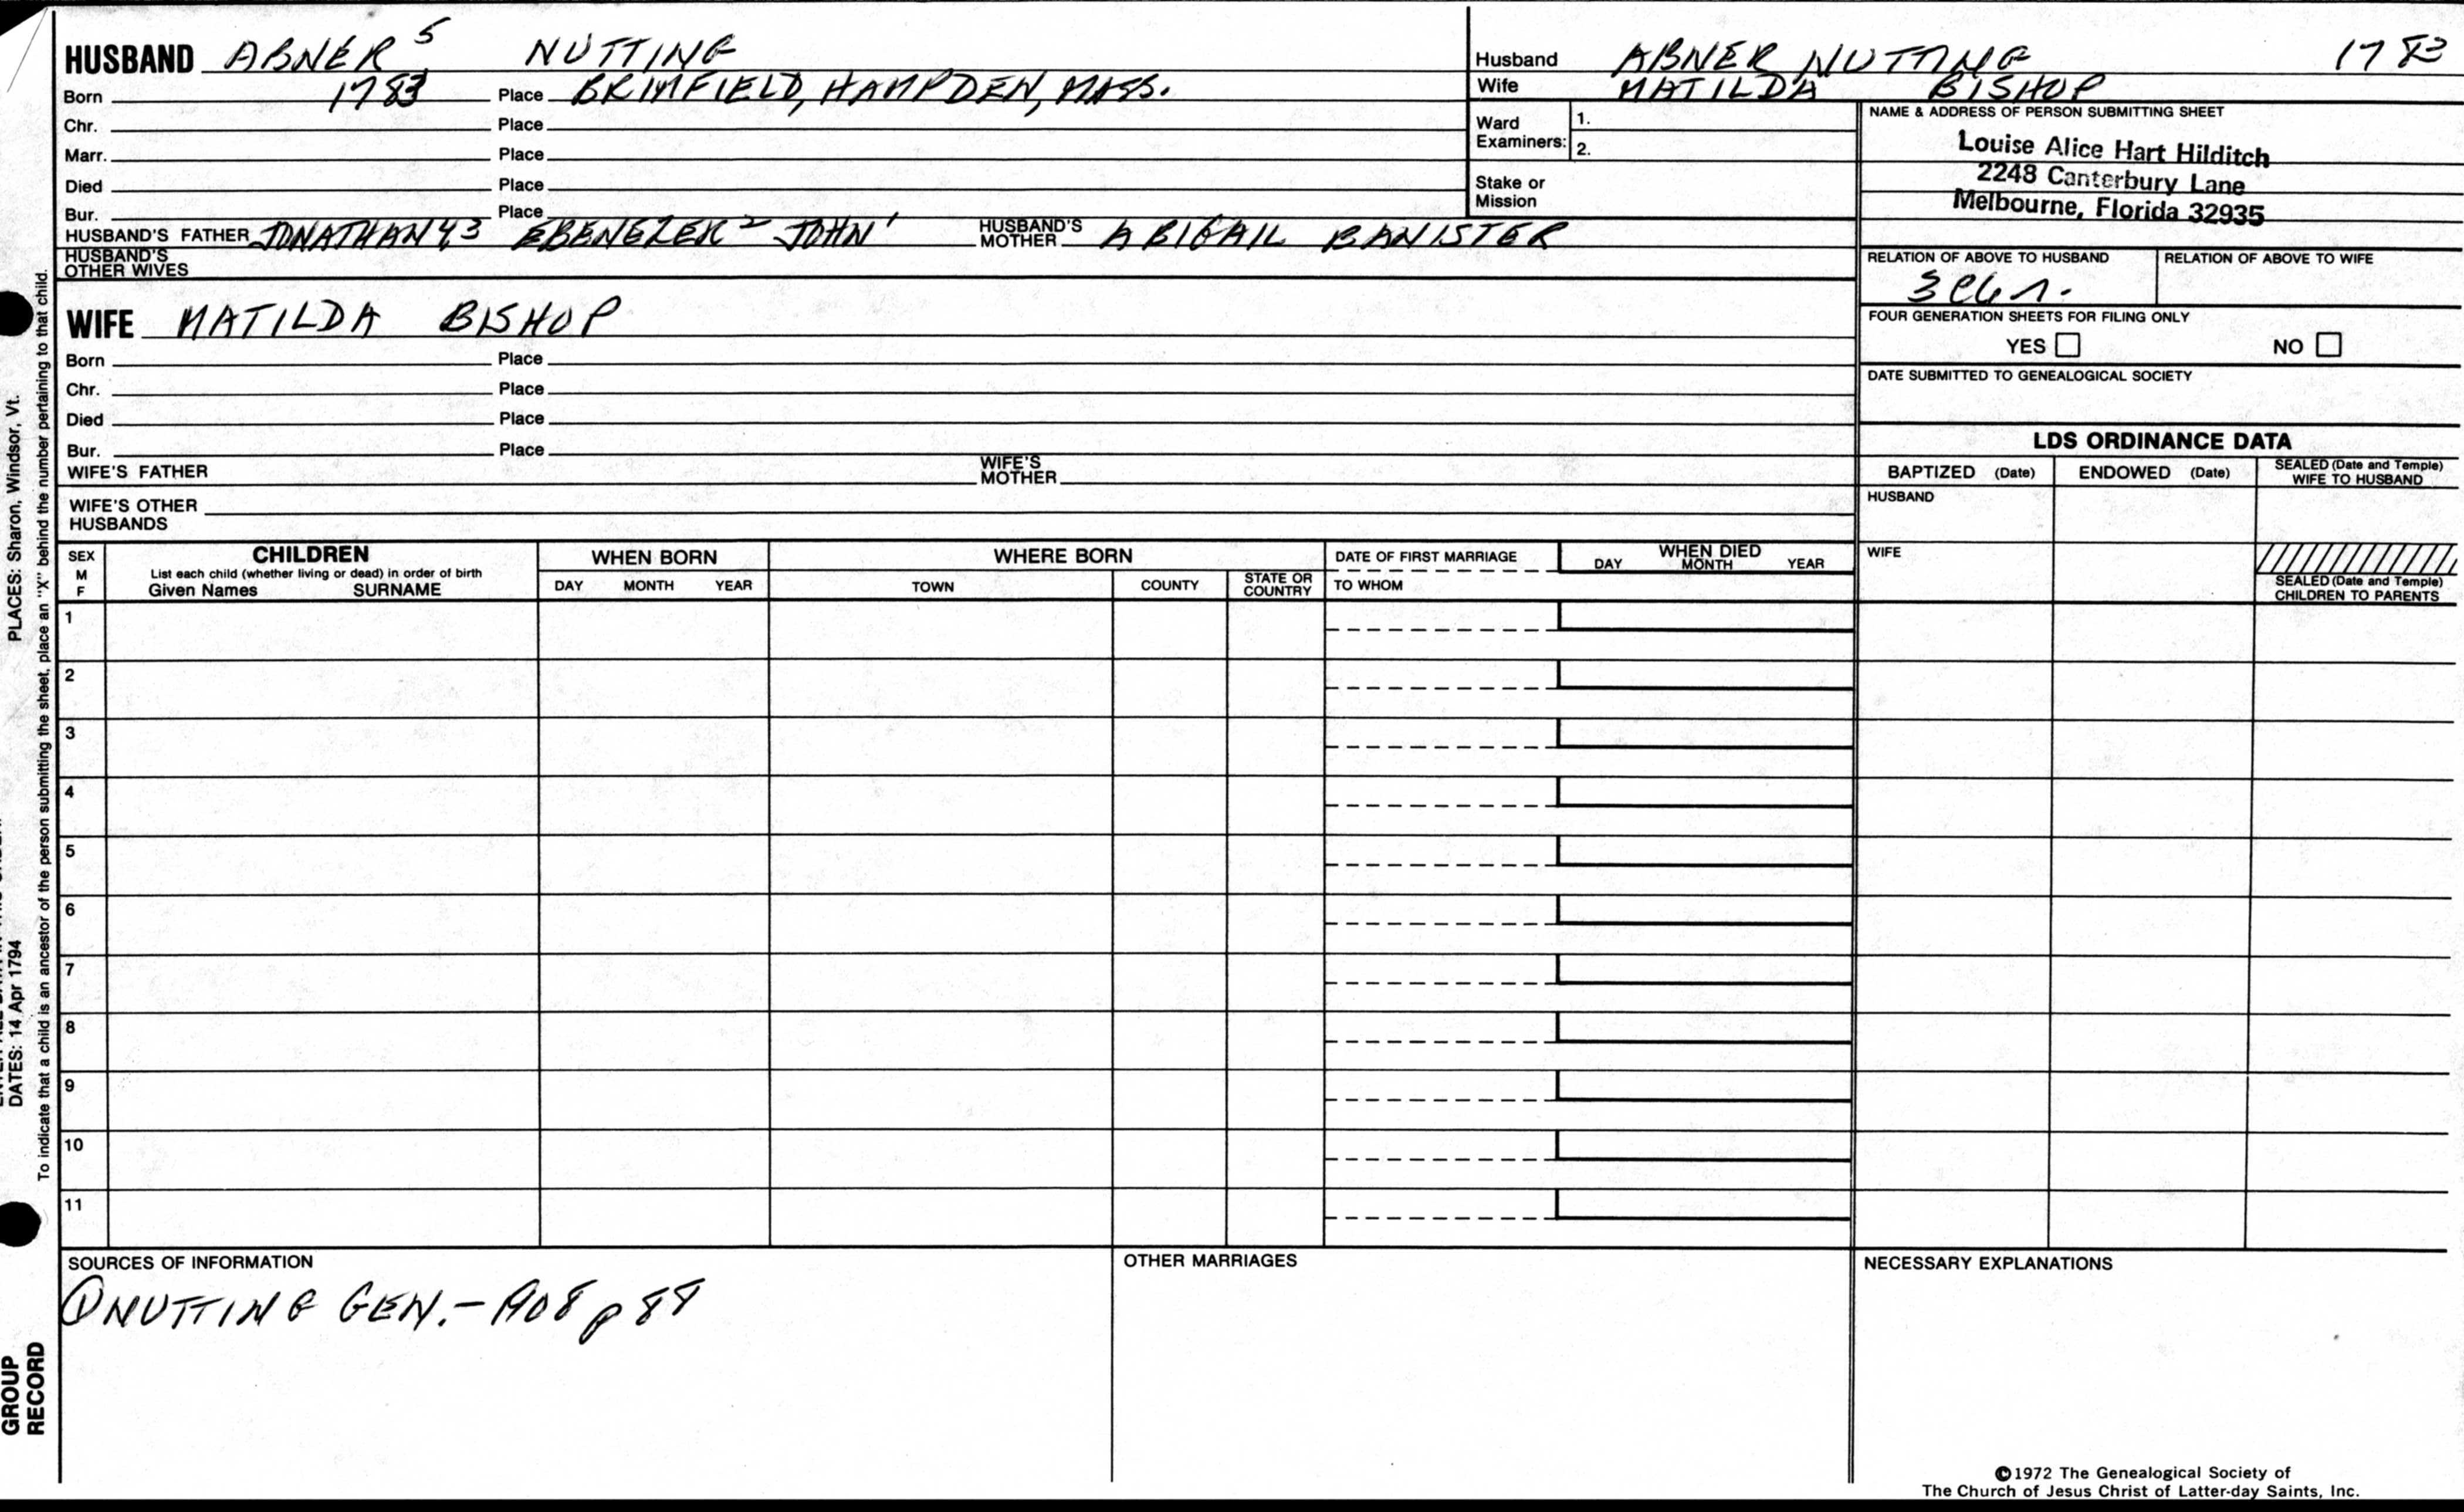 HUSBAND ABNER 5 NUTTING
Born 1783 Place BRIMFIELD, HAMPDEN, MASS.
Chr. Place
Marr. Place
Died Place
Bur. Place
HUSBAND'S FATHER JONATHAN 43 EBENEZER 2 JOHN 1 HUSBAND'S MOTHER ABIGAIL BANISTER
HUSBAND'S OTHER WIVES
Husband ABNER NUTTING 1783
Wife MATILDA BISHOP
Ward Examiners: 1.
2.
Stake or Mission
NAME & ADDRESS OF PERSON SUBMITTING SHEET
Louise Alice Hart Hilditch
2248 Canterbury Lane
Melbourne, Florida 32935
RELATION OF ABOVE TO HUSBAND RELATION OF ABOVE TO WIFE
FOUR GENERATION SHEETS FOR FILING ONLY
YES NO
DATE SUBMITTED TO GENEALOGICAL SOCIETY
WIFE MATILDA BISHOP
Born Place
Chr. Place
Died Place
Bur. Place
WIFE'S FATHER WIFE'S MOTHER
WIFE'S OTHER HUSBANDS
LDS ORDINANCE DATA
BAPTIZED (Date) ENDOWED (Date) SEALED (Date and Temple) WIFE TO HUSBAND
HUSBAND
WIFE
SEALED (Date and Temple) CHILDREN TO PARENTS
SEX M F
CHILDREN
List each child (whether living or dead) in order of birth
Given Names SURNAME
WHEN BORN
DAY MONTH YEAR
WHERE BORN
TOWN COUNTY STATE OR COUNTRY
DATE OF FIRST MARRIAGE
TO WHOM
WHEN DIED
DAY MONTH YEAR
1
2
3
4
5
6
7
8
9
10
11
SOURCES OF INFORMATION
① NUTTING GEN.-
OTHER MARRIAGES
NECESSARY EXPLANATIONS
©1972 The Genealogical Society of
The Church of Jesus Christ of Latter-day Saints, Inc.
PLACES: Sharon, Windsor, Vt.
DATES: 14 Apr 1794
To indicate that a child is an ancestor of the person submitting the sheet, place an "X" behind the number pertaining to that child.
GROUP
RECORD